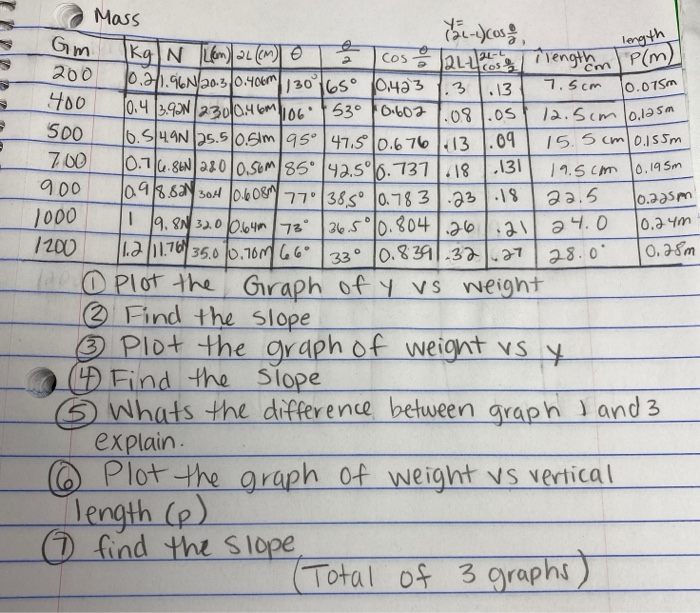 Mass y= (2L-L)cos θ/2, length
Gm Kg N L(cm) 2L(m) θ θ/2 cos θ/2 2L-L 2L-L cos θ/2 length cm P(m)
200 0.2 1.96N 20.3 0.406m 130° 65° 0.423 .3 .13 7.5cm 0.075m
400 0.4 3.92N 23.0 0.46m 106° 53° 0.602 .08 .05 12.5cm 0.125m
500 0.5 4.9N 25.5 0.51m 95° 47.5° 0.676 .13 .09 15.5cm 0.155m
700 0.7 6.86N 28.0 0.56m 85° 42.5° 0.737 .18 .131 19.5cm 0.195m
900 0.9 8.82N 30.4 0.608m 77° 38.5° 0.783 .23 .18 22.5 0.225m
1000 1 9.8N 32.0 0.64m 73° 36.5° 0.804 .26 .21 24.0 0.24m
1200 1.2 11.76N 35.0 0.70m 66° 33° 0.839 .32 .27 28.0 0.28m
① Plot the Graph of y vs weight
② Find the slope
③ Plot the graph of weight vs y
④ Find the slope
⑤ Whats the difference between graph 1 and 3
explain.
⑥ Plot the graph of weight vs vertical
length (p)
⑦ find the slope
(Total of 3 graphs)